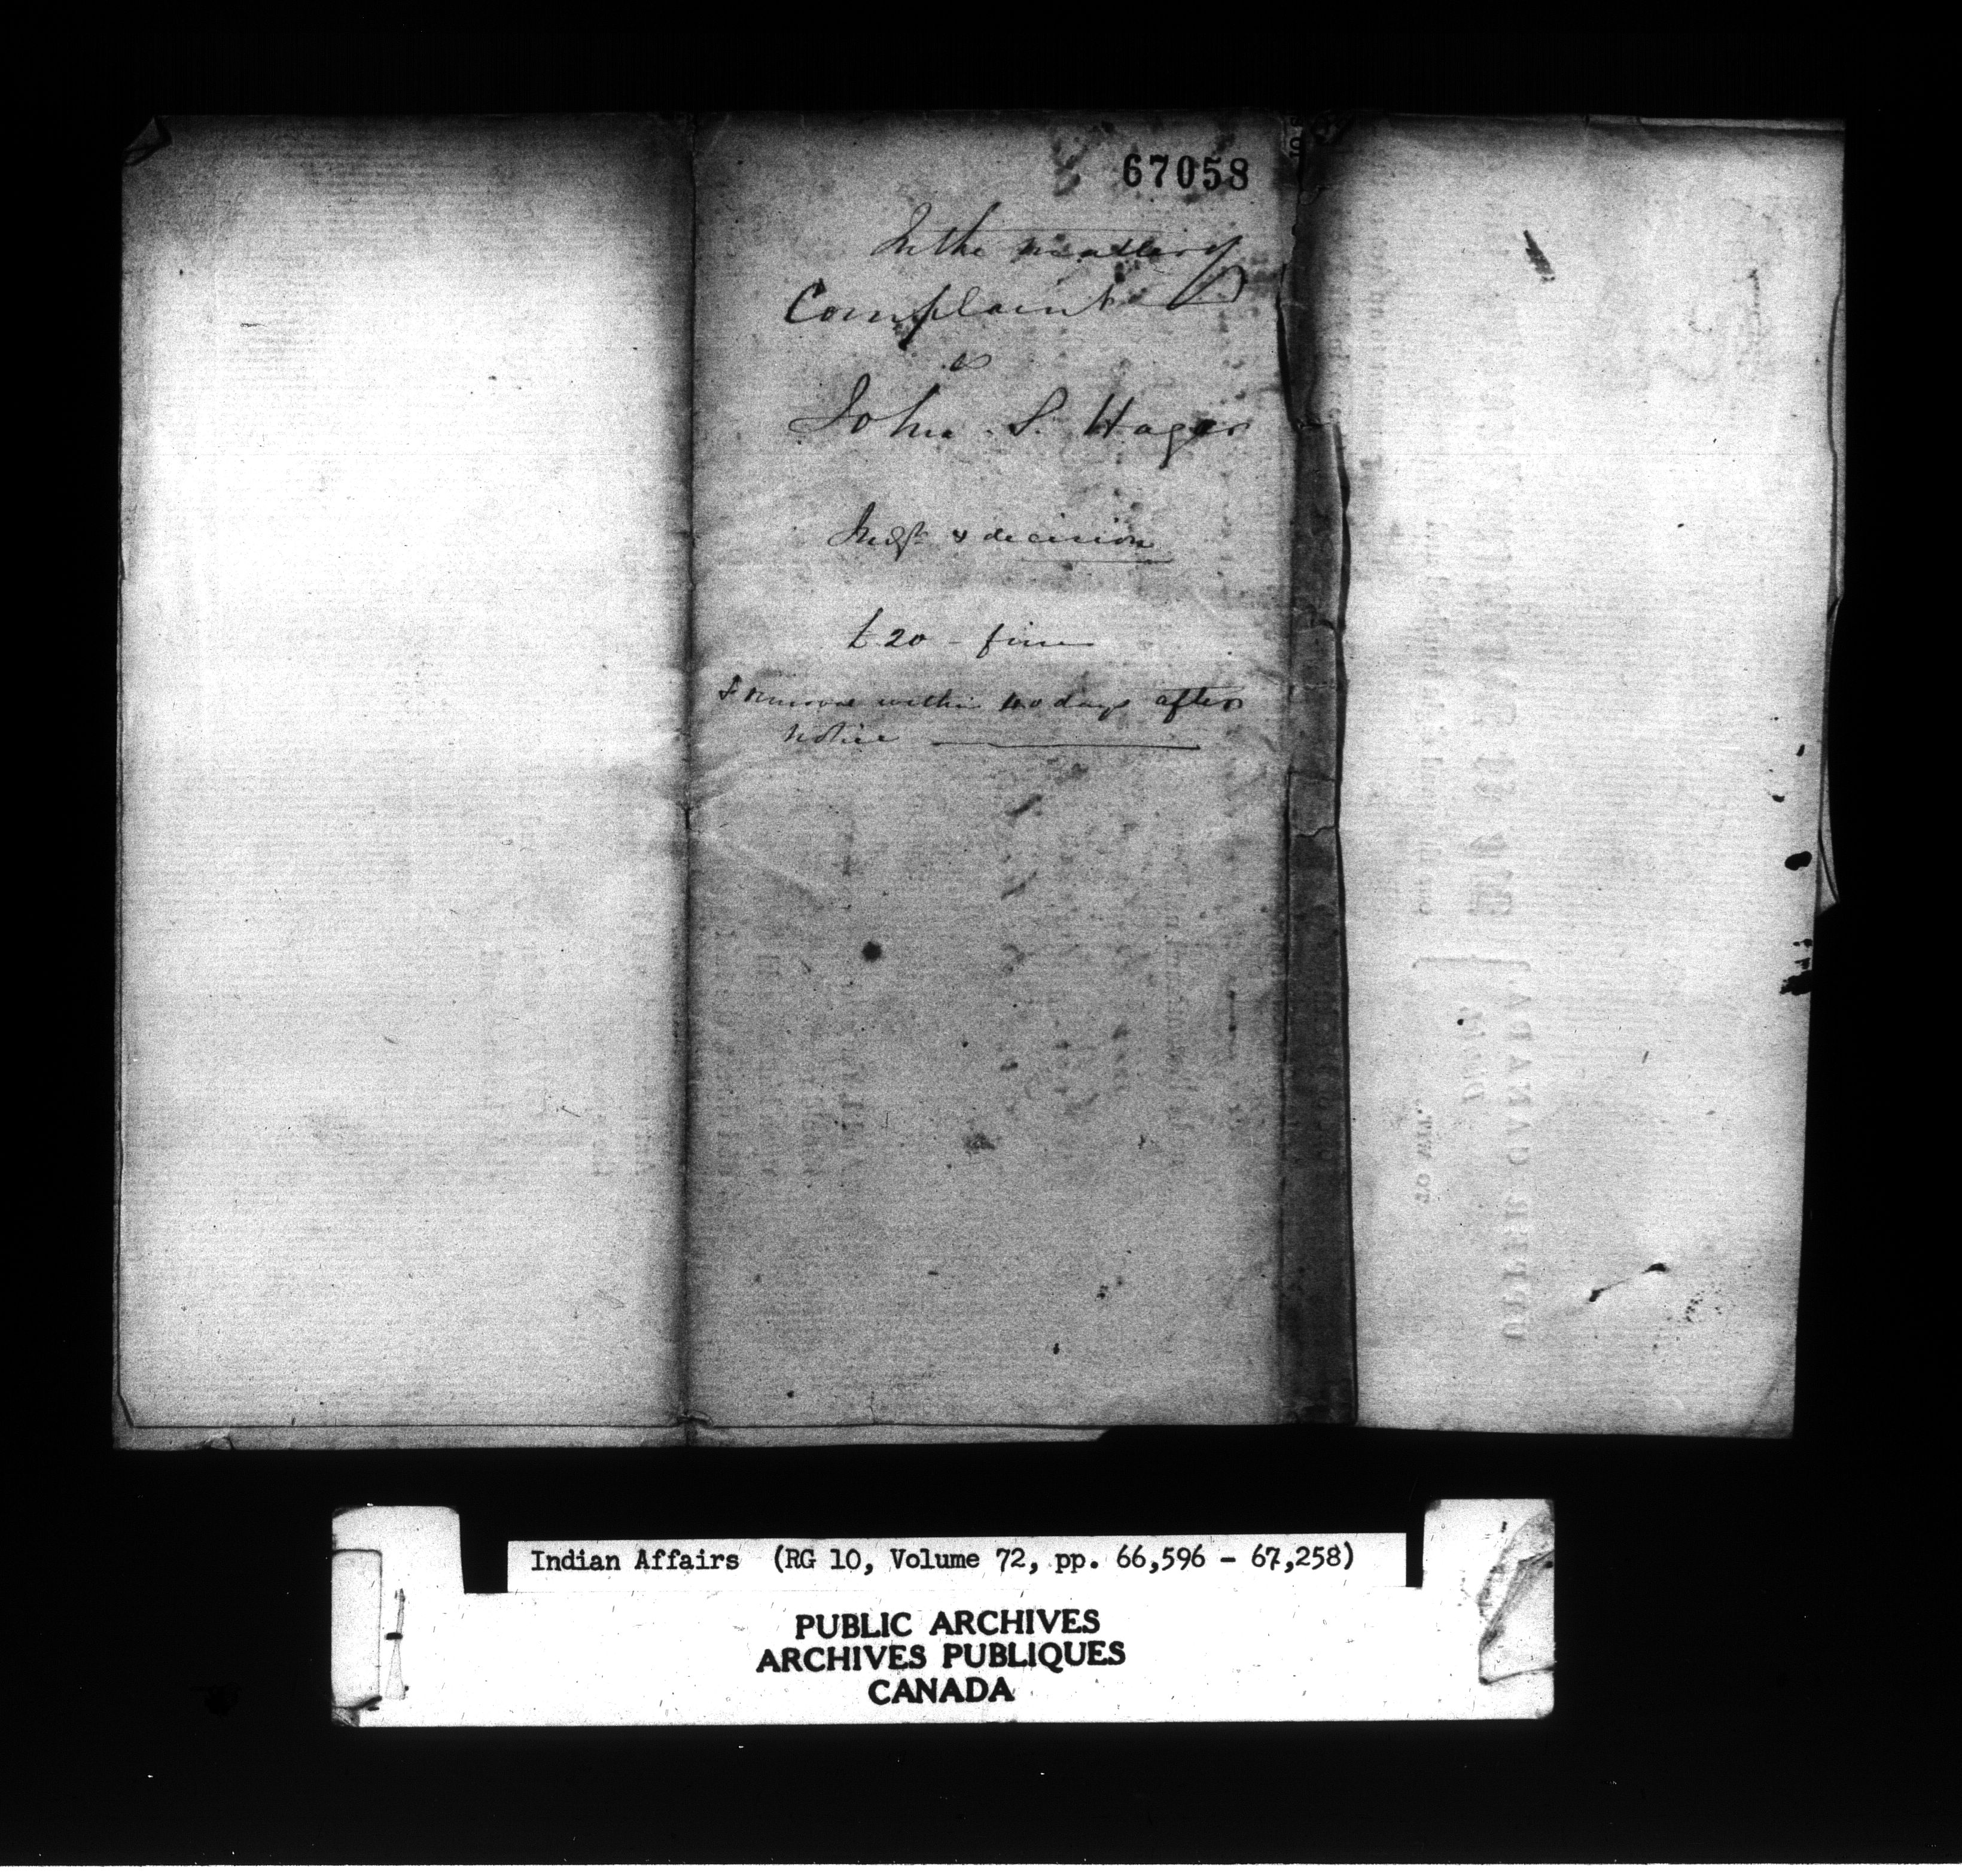 67058
In the matter of
Complaint
vs
John S. Hager
Judgt & decision
£20 - fine
& remove within 40 days after
notice
UPPER CANADA,
TO WIT.
Indian Affairs (RG 10, Volume 72, pp. 66,596 - 67,258)
PUBLIC ARCHIVES
ARCHIVES PUBLIQUES
CANADA